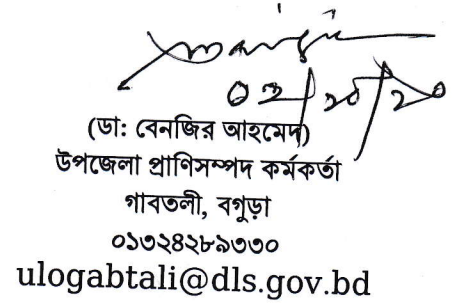 ০২/১০/২০
(ডা: বেনজির আহমেদ)
উপজেলা প্রাণিসম্পদ কর্মকর্তা
গাবতলী, বগুড়া
০১৩২৪২৮৯৩৩০
ulogabtali@dls.gov.bd